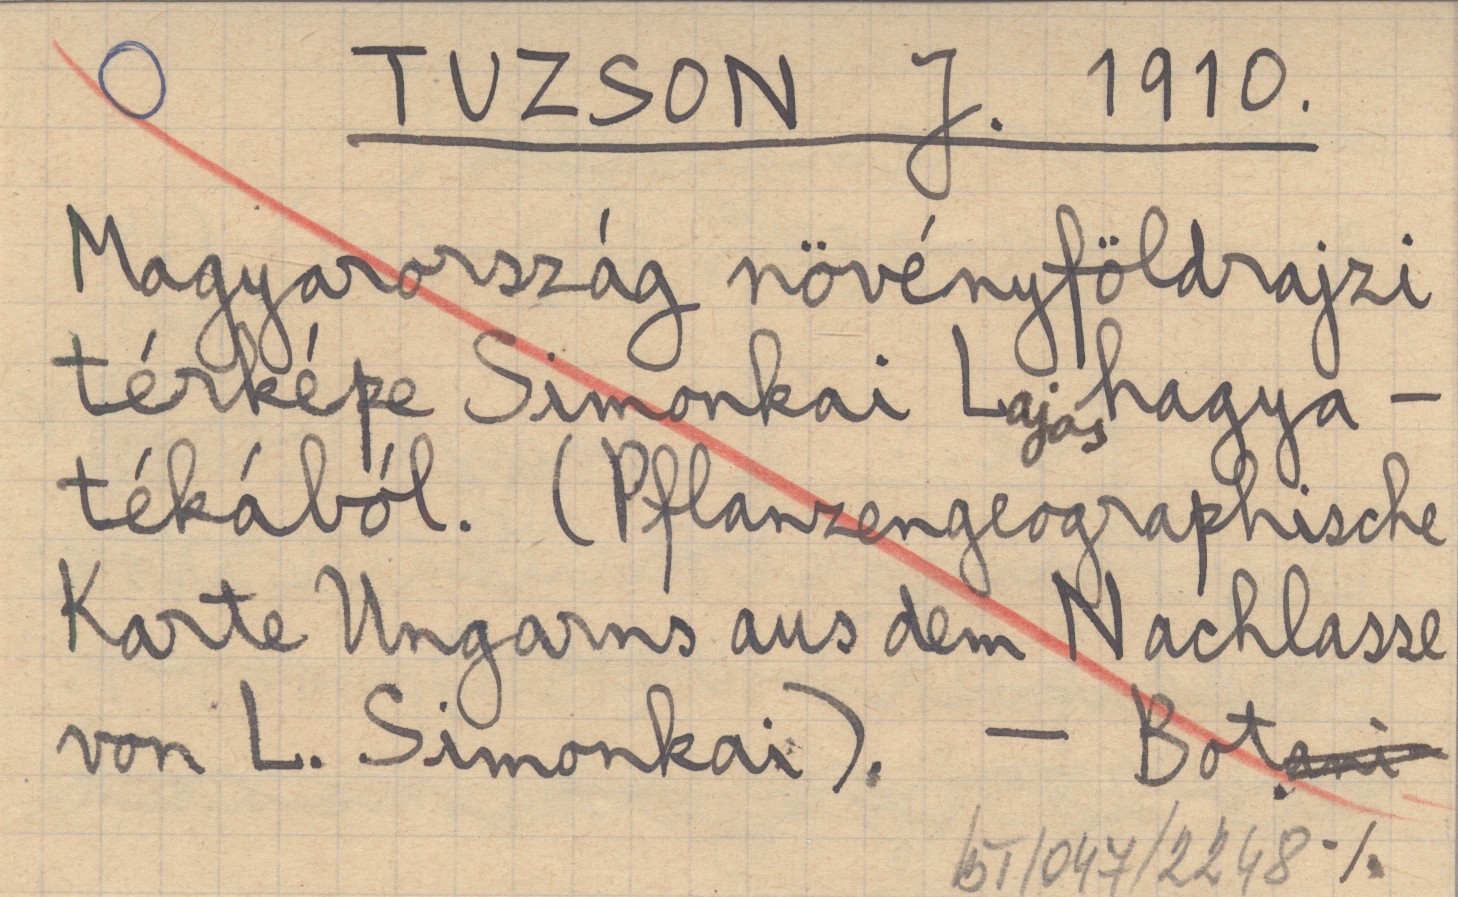 TUZSON J. 1910.
Magyarország növényföldrajzi
térképe Simonkai Lajos hagya-
tékából. (Pflanzengeographische
Karte Ungarns aus dem Nachlasse
von L. Simonkai). - Bot.
BT/047/2248 ·/.